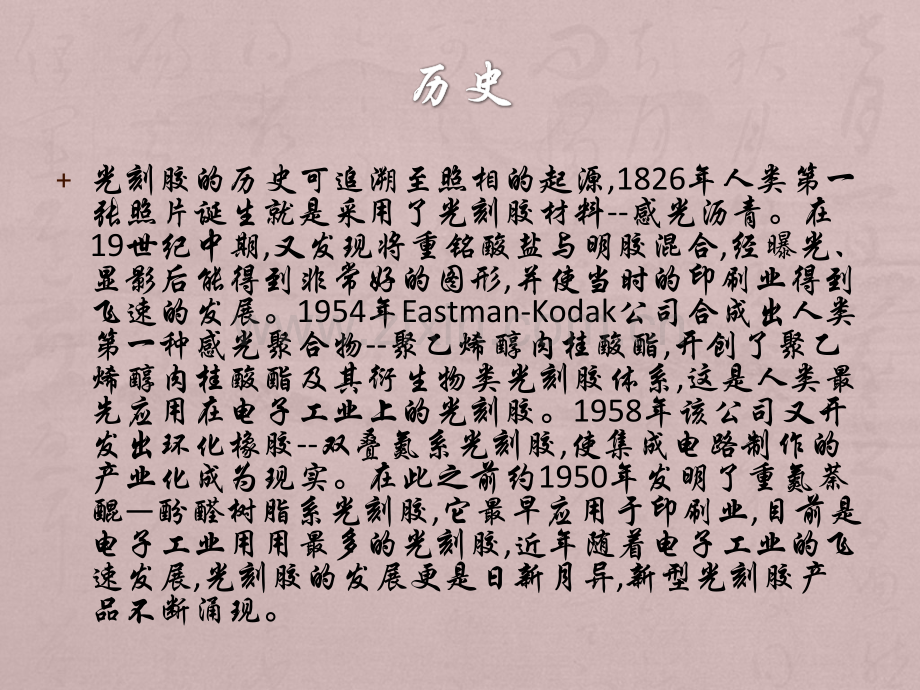 历史
+ 光刻胶的历史可追溯至照相的起源,1826年人类第一
张照片诞生就是采用了光刻胶材料--感光沥青。在
19世纪中期,又发现将重铬酸盐与明胶混合,经曝光、
显影后能得到非常好的图形,并使当时的印刷业得到
飞速的发展。1954年Eastman-Kodak公司合成出人类
第一种感光聚合物--聚乙烯醇肉桂酸酯,开创了聚乙
烯醇肉桂酸酯及其衍生物类光刻胶体系,这是人类最
先应用在电子工业上的光刻胶。1958年该公司又开
发出环化橡胶--双叠氮系光刻胶,使集成电路制作的
产业化成为现实。在此之前约1950年发明了重氮萘
醌—酚醛树脂系光刻胶,它最早应用于印刷业,目前是
电子工业用用最多的光刻胶,近年随着电子工业的飞
速发展,光刻胶的发展更是日新月异,新型光刻胶产
品不断涌现。